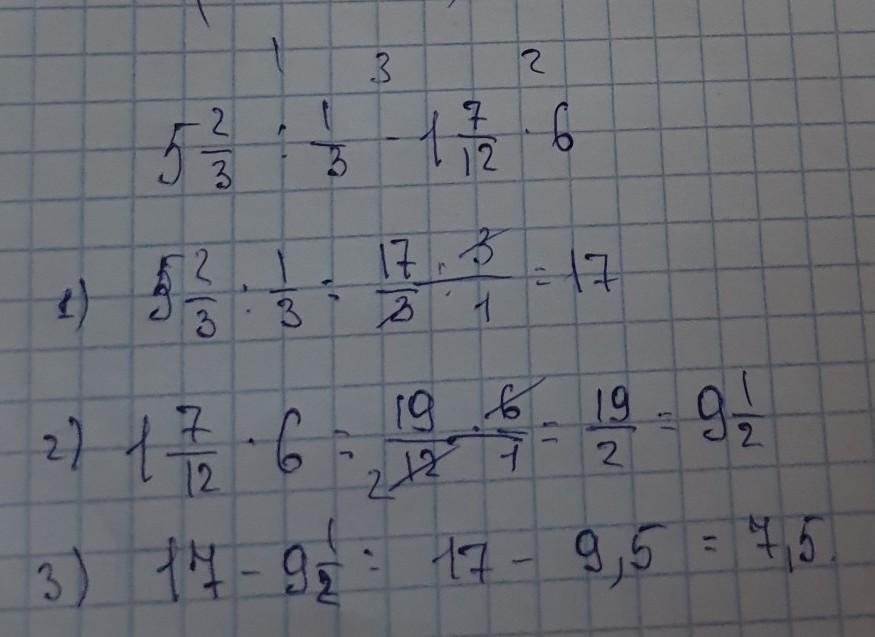 1 3 2
5 2/3 : 1/3 - 1 7/12 · 6
1) 5 2/3 : 1/3 = 17/3 · 3/1 = 17
2) 1 7/12 · 6 = 19/12 · 6/1 = 19/2 = 9 1/2
2
3) 17 - 9 1/2 = 17 - 9,5 = 7,5.